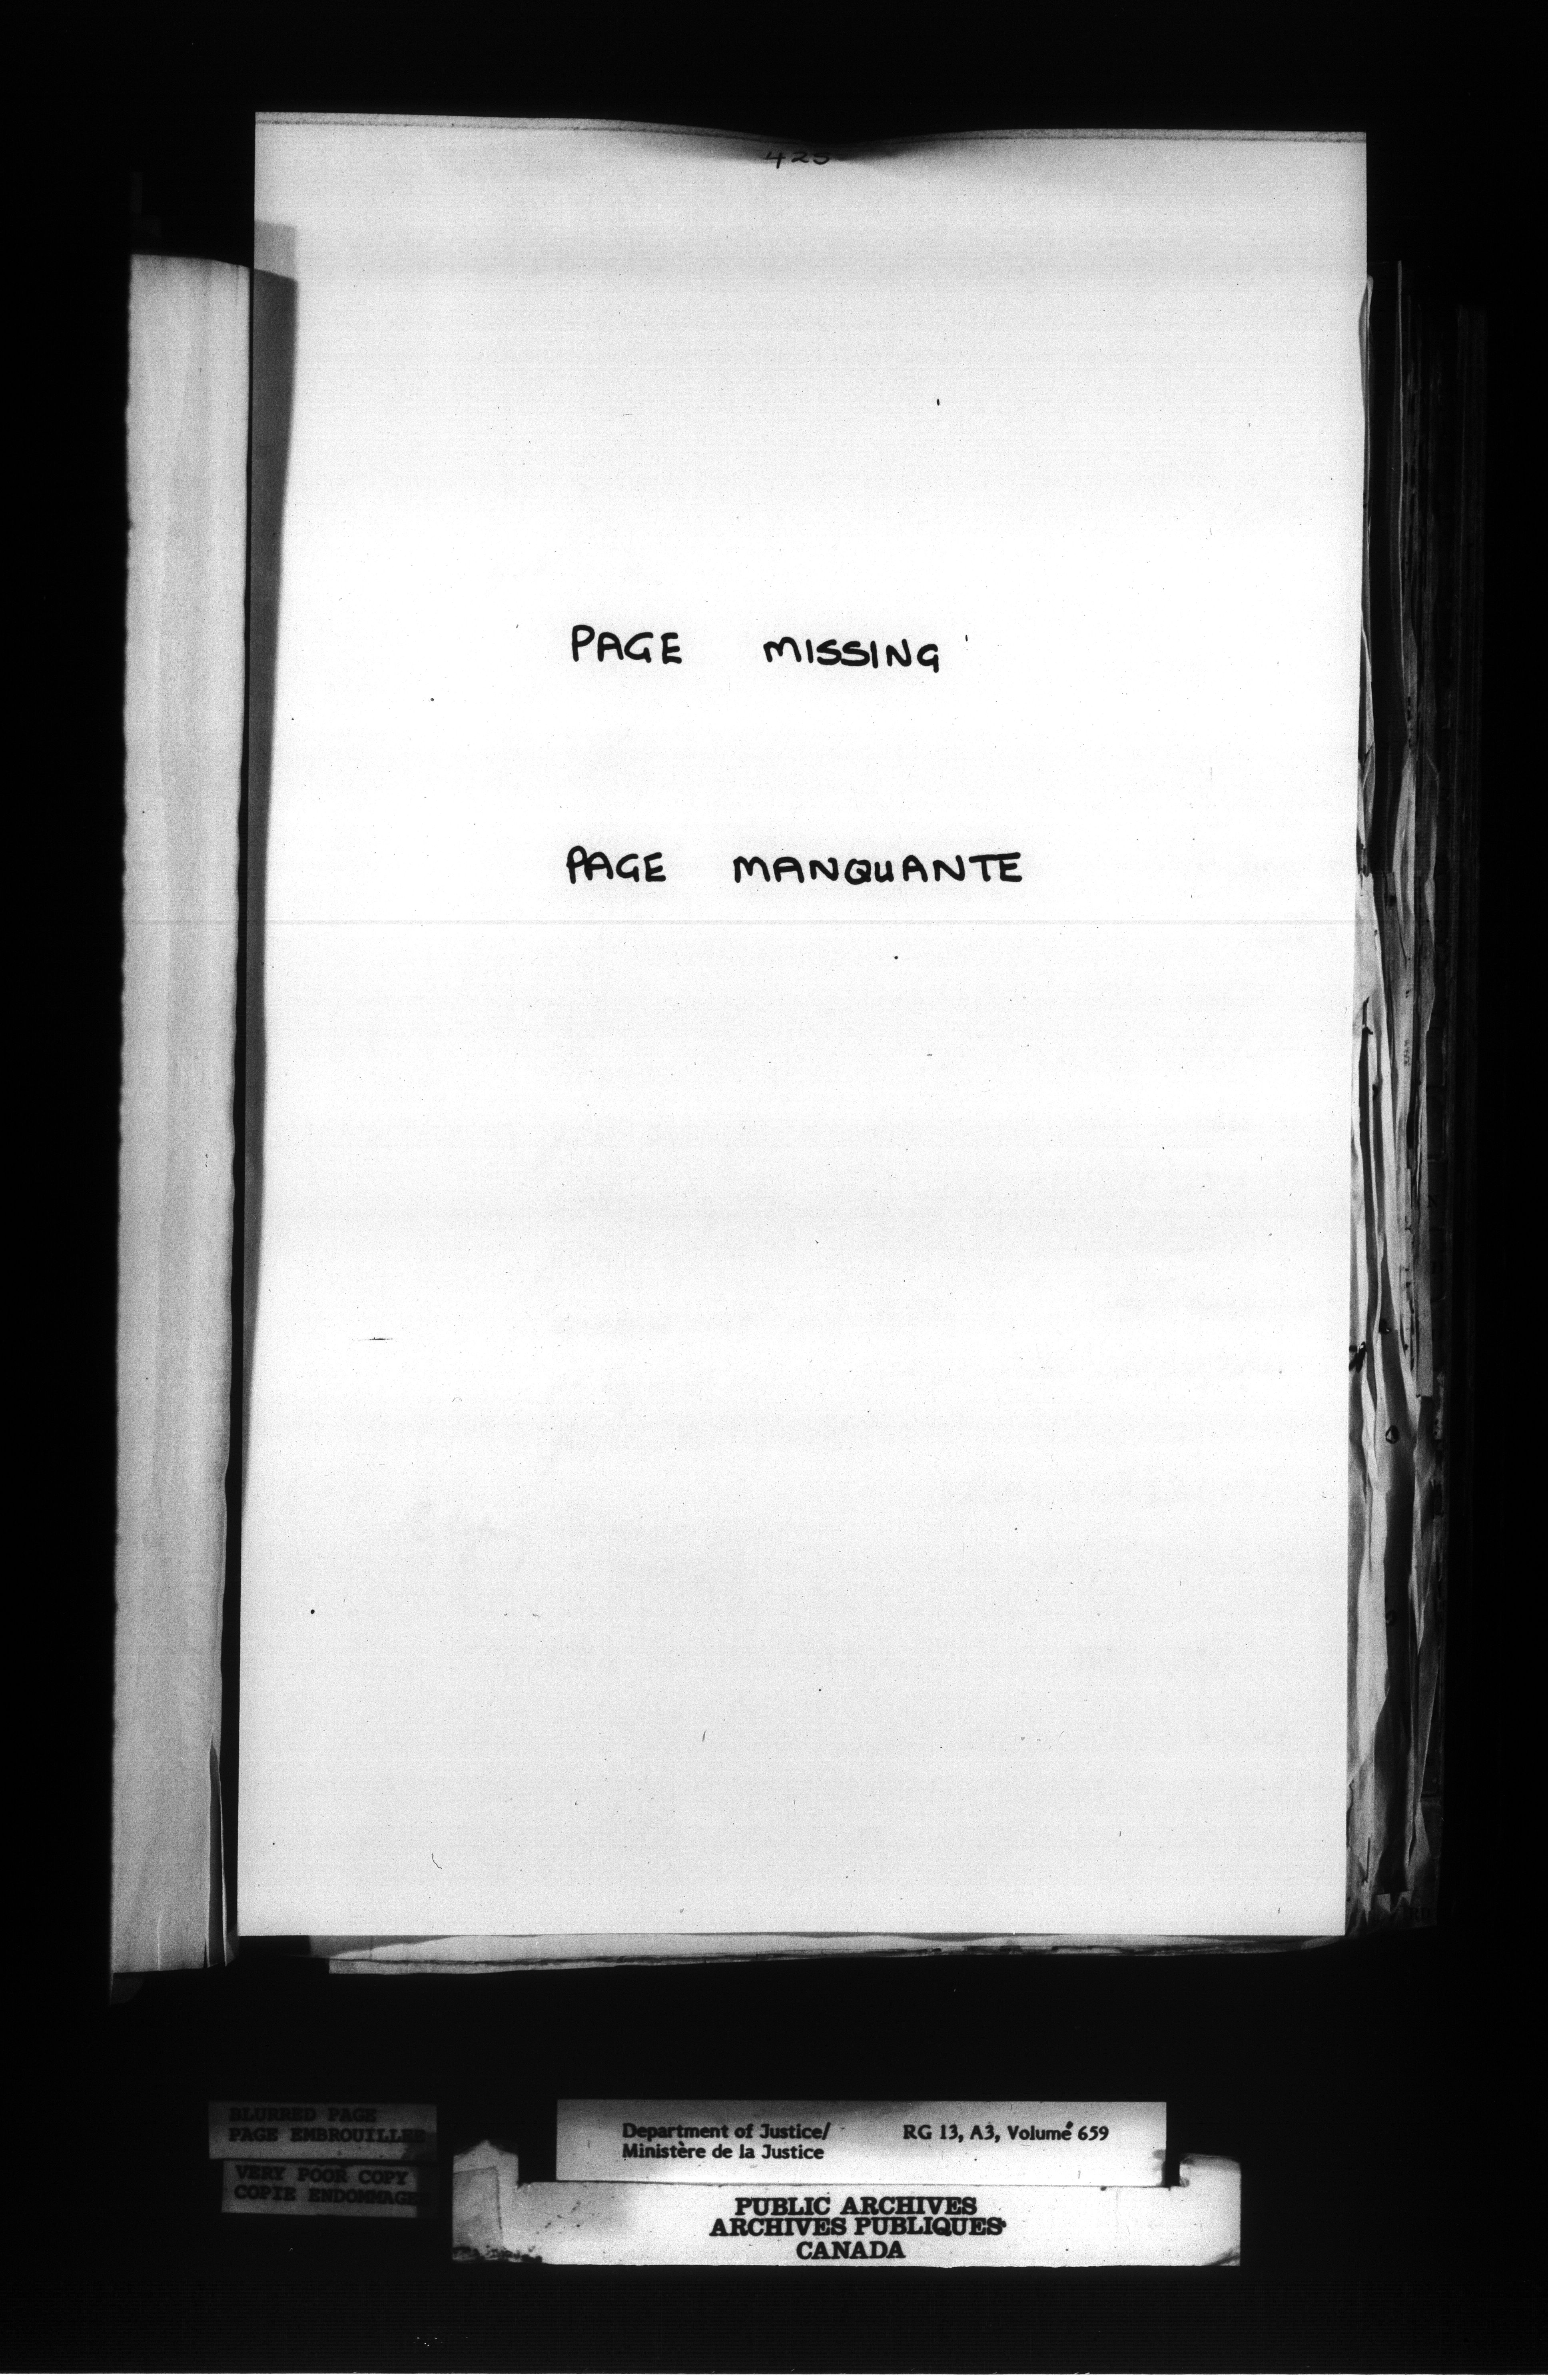 425
PAGE MISSING
PAGE MANQUANTE
BLURRED PAGE
PAGE EMBROUILLEE
VERY POOR COPY
COPIE ENDOMMAGE
Department of Justice/ RG 13, A3, Volume 659
Ministère de la Justice
PUBLIC ARCHIVES
ARCHIVES PUBLIQUES
CANADA